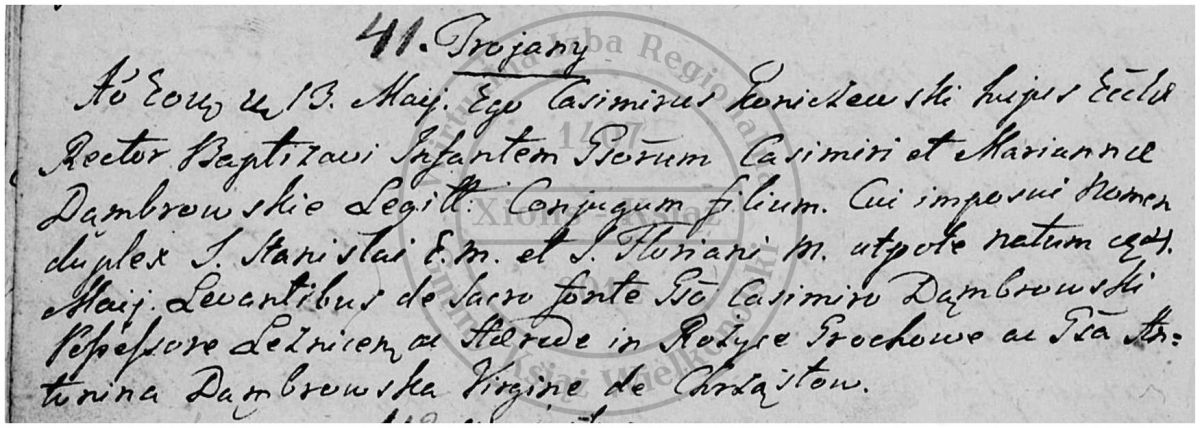 41. Trojany
Aõ Eodẽ die 13. Maij. Ego Casimirus Koniczewski hujus Eccłæ
Rector Baptizavi Infantem Gsorum Casimiri et Mariannæ
Dąmbrowskie Legitt. Conjugum filium. Cui imposui Nomen
duplex S. Stanislai E. m. et S. Floriani M. utpote natum
Maij. Levantibus de Sacro fonte Gso Casimiro Dąmbrowski
Possessore ac Hærede in Rożyce Grochowe ac Gsa An=
tonina Dąmbrowska Virgine de Chrząstow.
Wirtualna Izba Regionalna
1407
Xions - Książ
Gminy Książ Wielkopolski